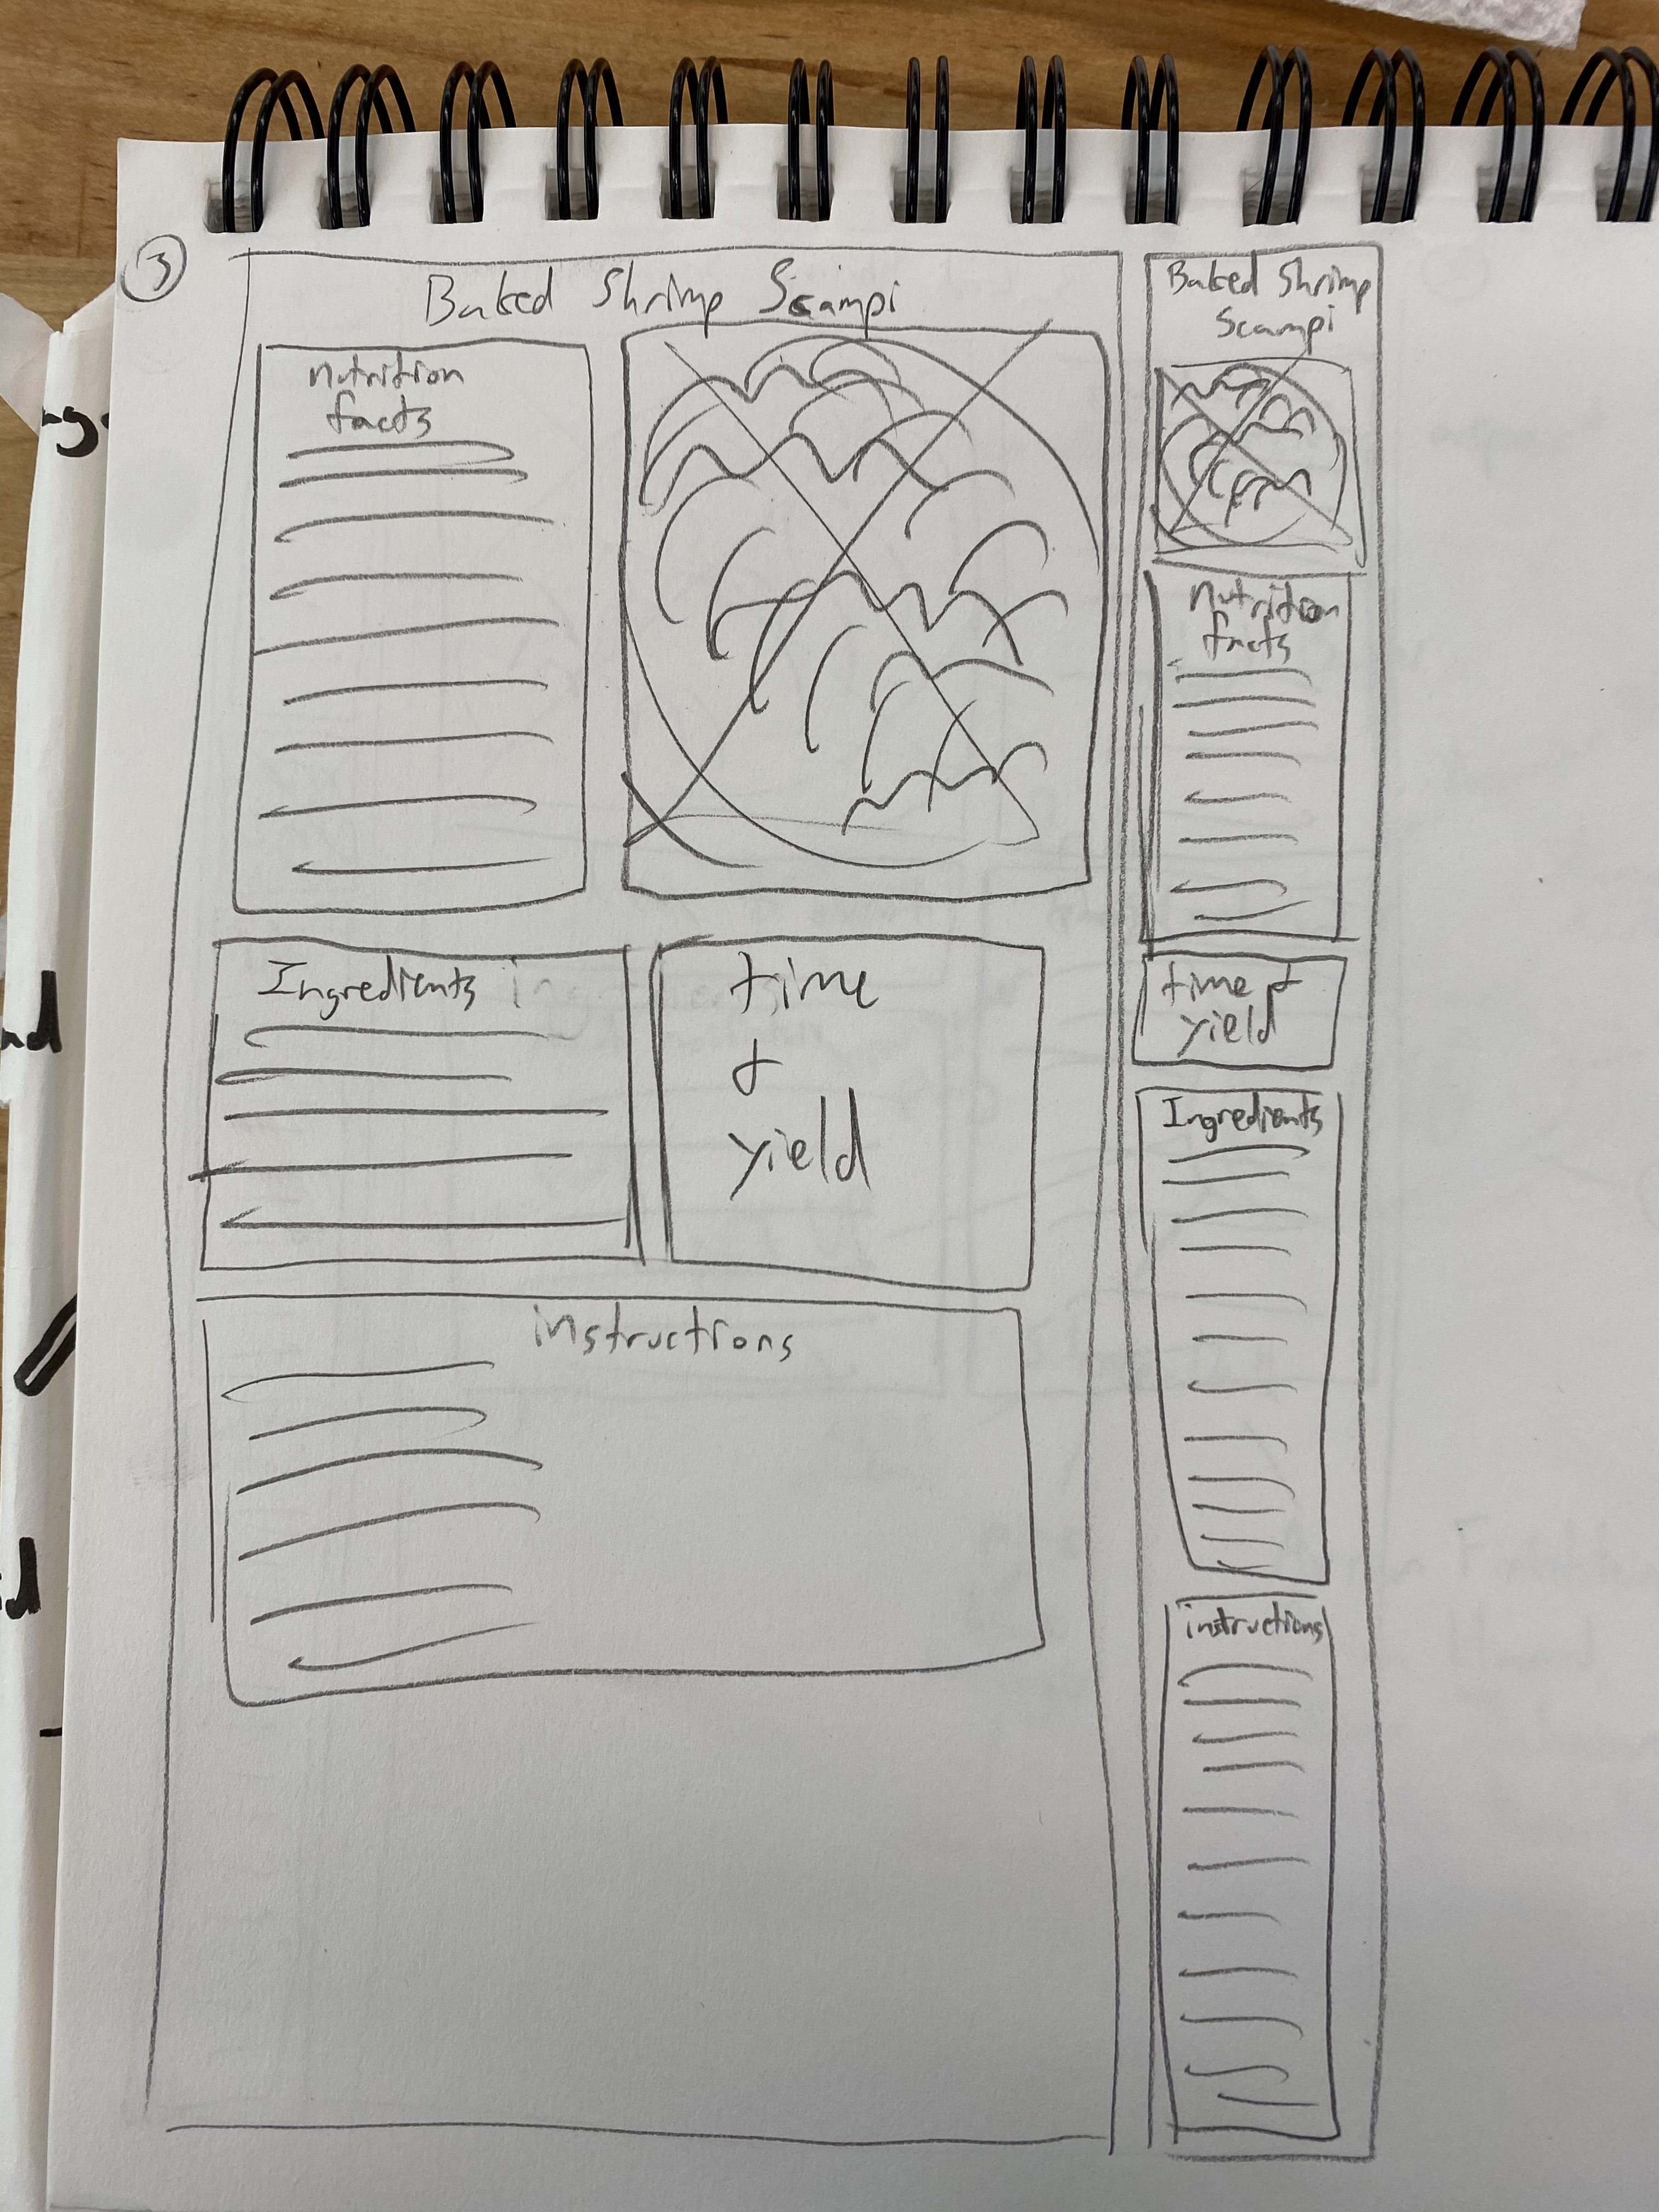 3
Baked Shrimp Scampi
nutrition
facts
Ingredients
time
&
yield
instructions
Baked Shrimp
Scampi
nutrition
facts
time &
yield
Ingredients
instructions